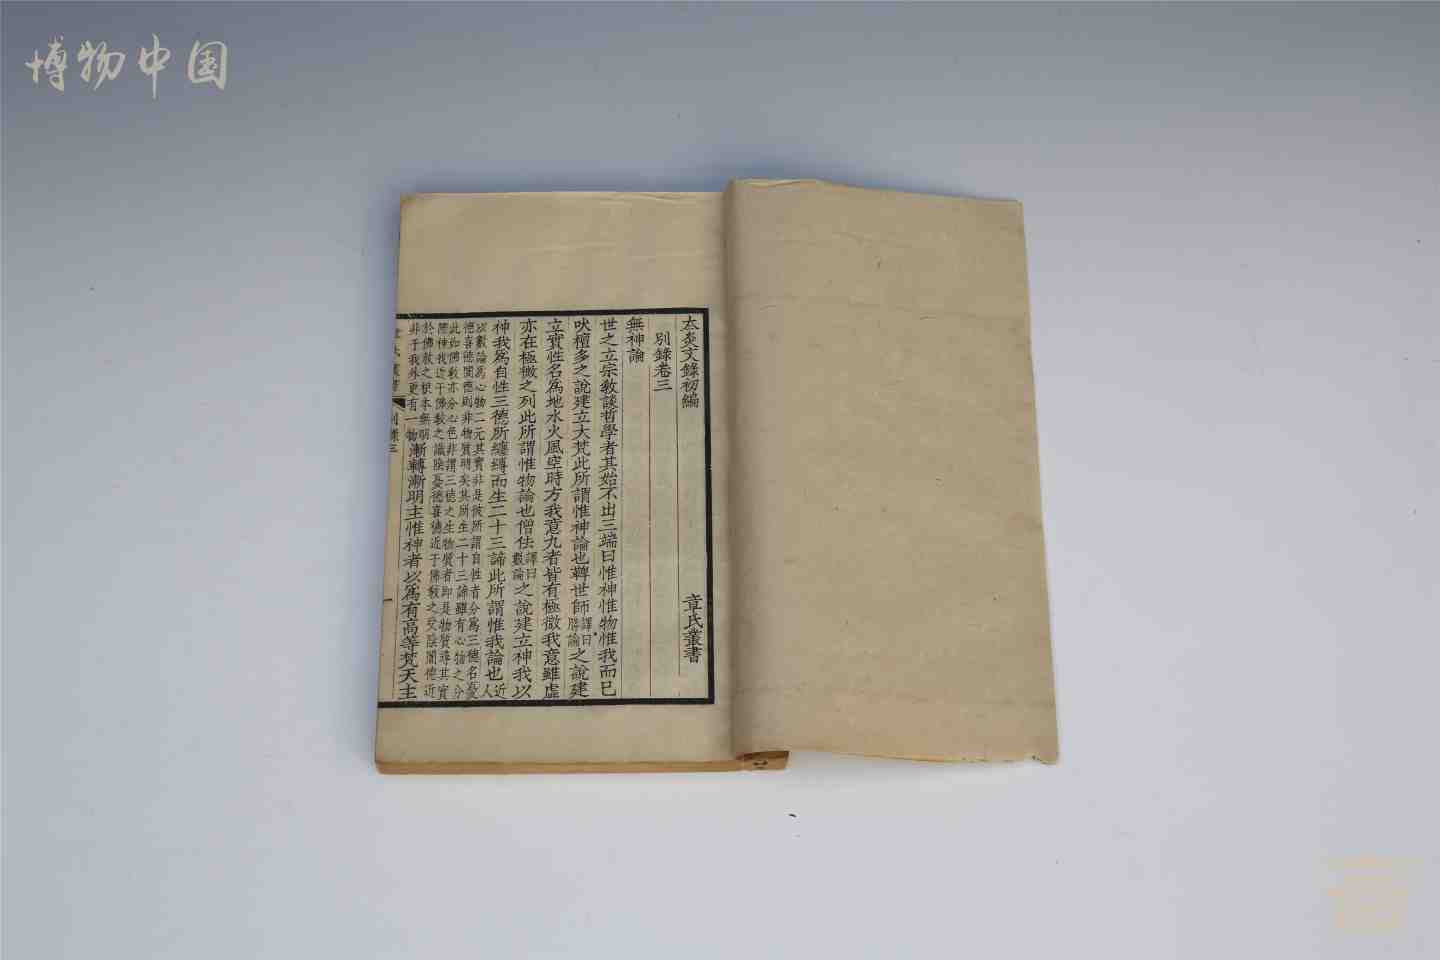 博物中国
太炎文錄初編
章氏叢書
別錄卷三
無神論
世之立宗教談哲學者其始不出三端曰惟神惟物惟我而已
吠檀多之說建立大梵此所謂惟神論也鞞世師譯曰勝論之說建
立實性名為地水火風空時方我意九者皆有極微我意雖虛
亦在極微之列此所謂惟物論也僧佉譯曰數論之說建立神我以
神我為自性三德所纏縛而生二十三諦此所謂惟我論也近人
以數論為心物二元其實非是彼所謂自性者分為三德名憂
德喜德闇德則非物質明矣其所生二十三諦雖有心物之分
此如佛教亦分心色非謂三德之生物質者即是物質導其實
際神我近于佛教之識陰憂德喜德近于佛教之受陰闇德近
於佛教之根本無明
非于我外更有一物漸轉漸明主惟神者以為有高等梵天主
別錄三